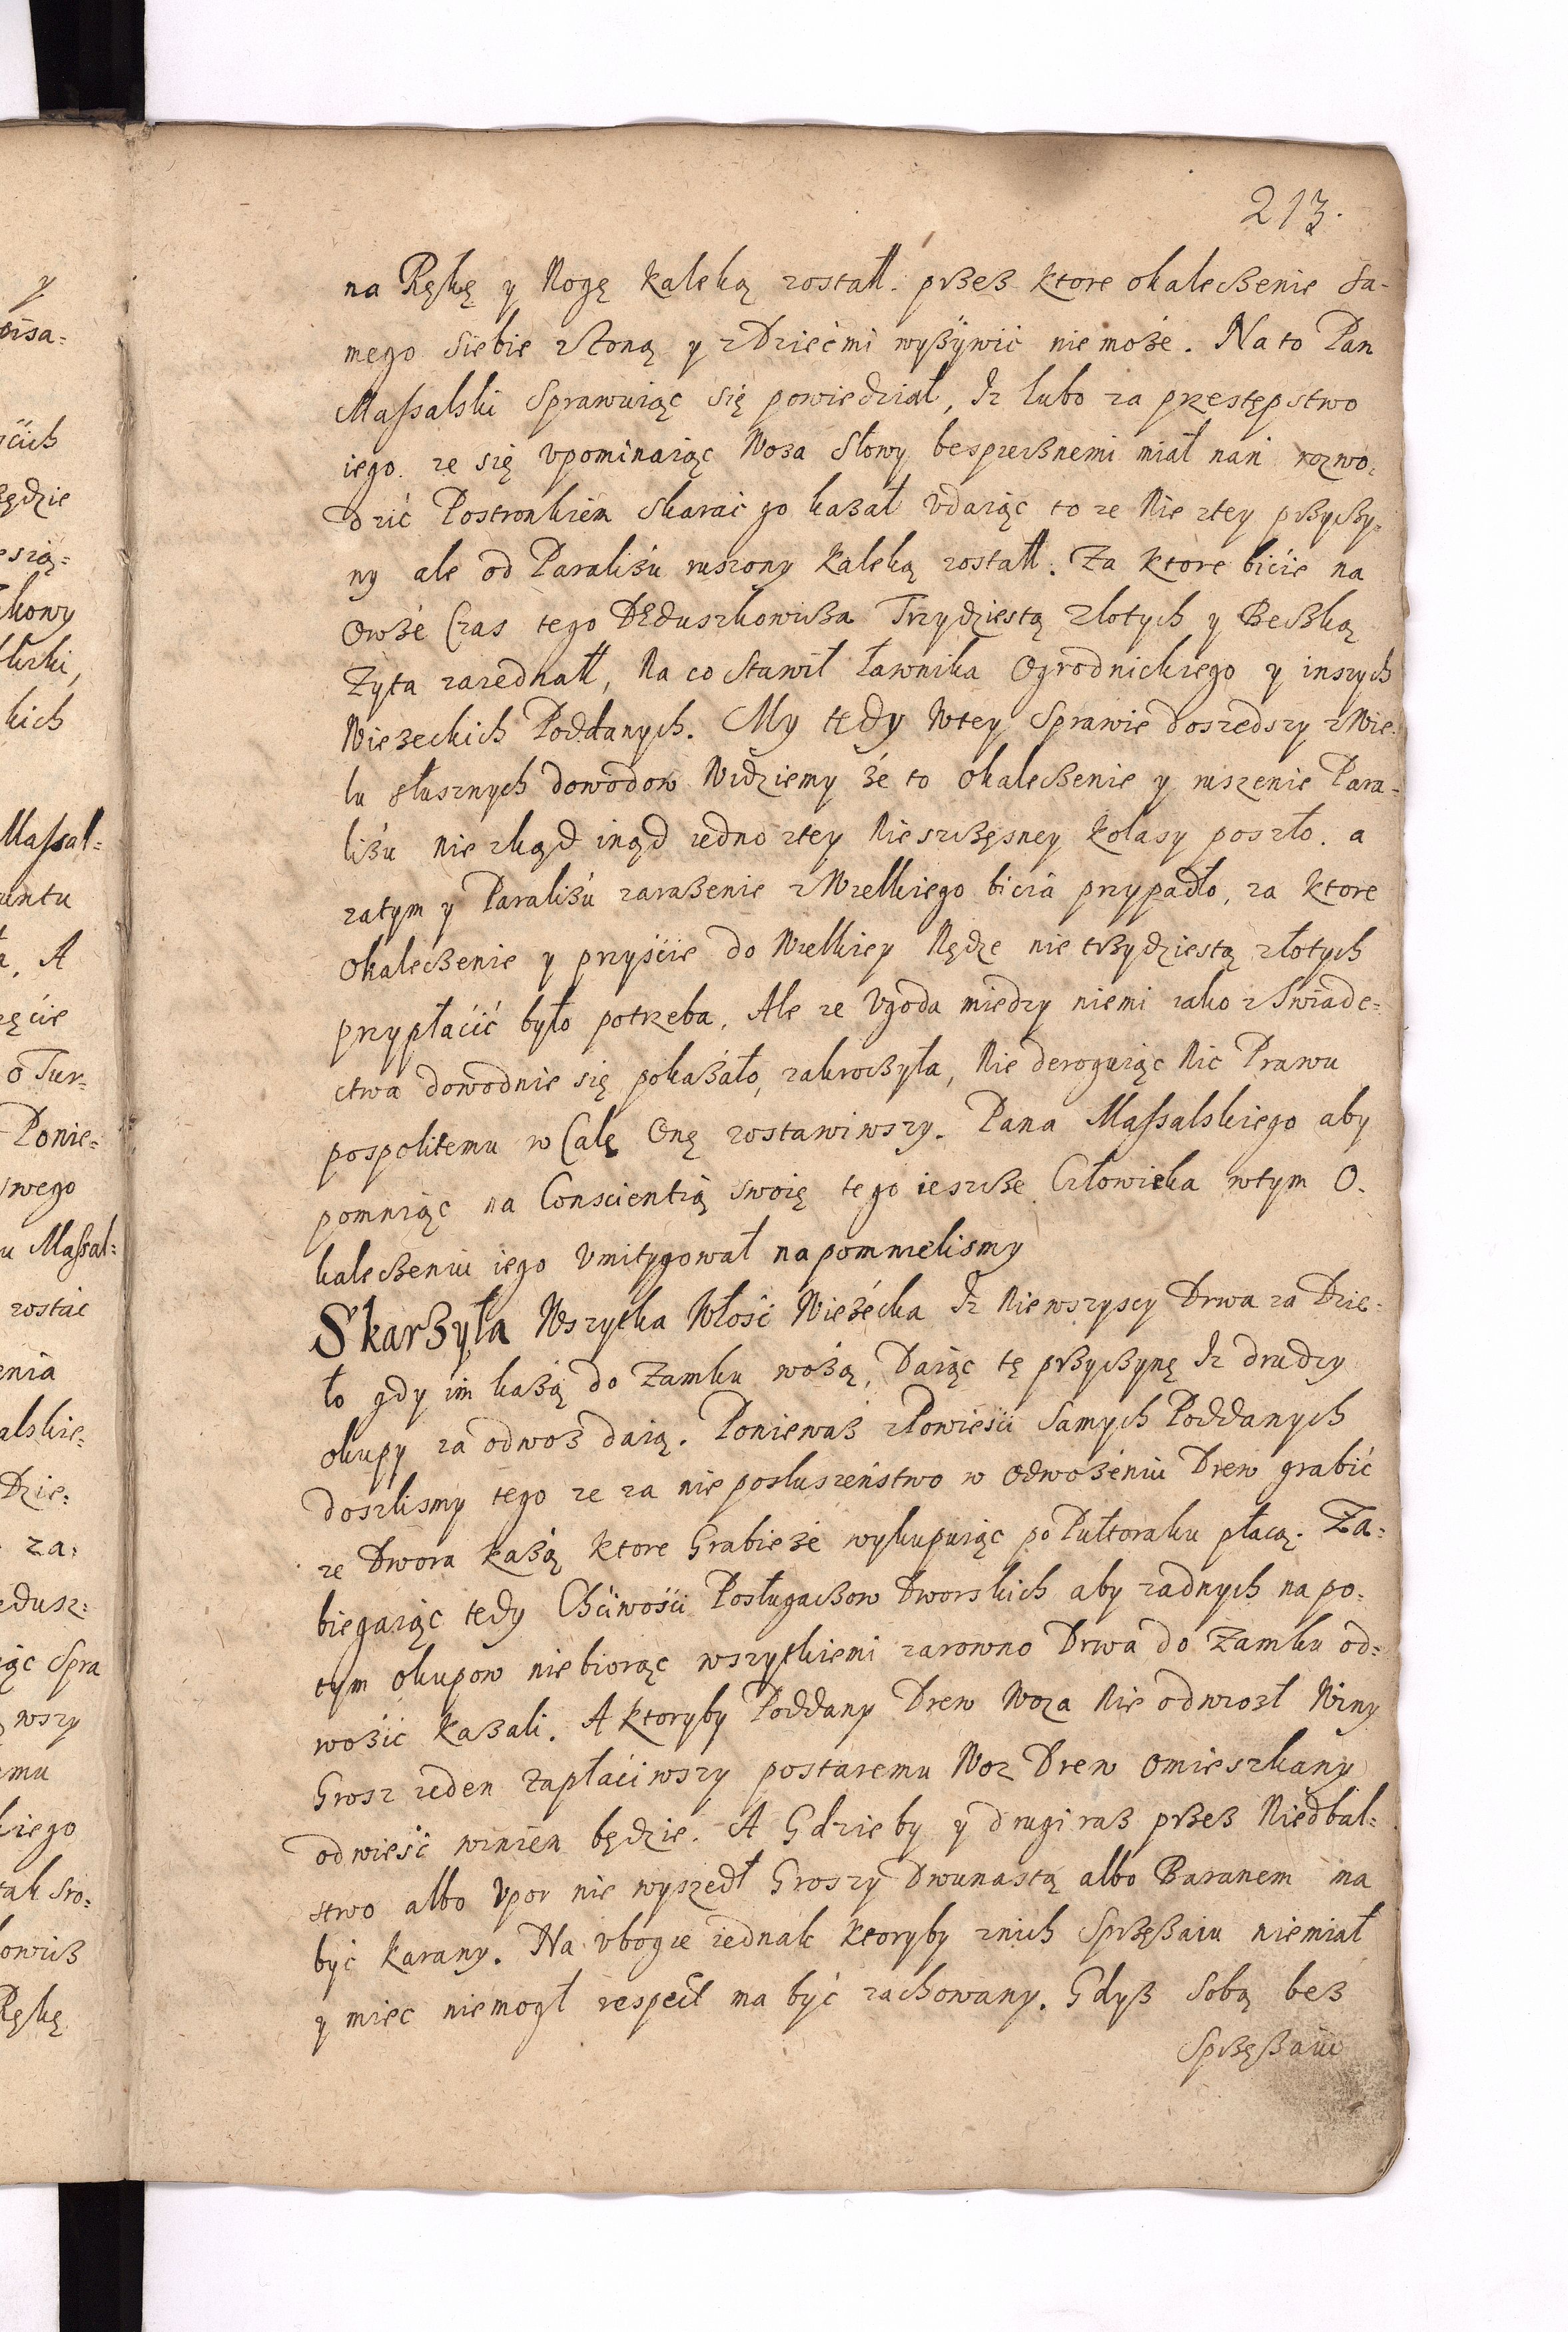 213.
na Rękę y Nogę kaleką zostałł. przez ktore okaleczenie sa-
mego siebie z Zoną y z Dziećmi wyżywić nie może. Na to Pan
Massalski Sprawuiąc się powiedział, Iz lubo za przestępstwo
iego. ze się vpominaiąc Woza Słowy bespiecznemi miał nań rozwo-
dzić Postronkiem Skarać go kazał vdaiąc to ze Nie z tey przyczy-
ny ale od Paraliżu ruszony kaleką zostałł. Za ktore bicie na
Owże Czas tego Deduszkowicza Trzydziestą Złotych y Beczką
Zyta zaiednałł, Na co stawił Ławnika Ogrodnickiego y inszych
Wieżeckich Poddanych. My tedy w tey Sprawie doszedszy z Wie-
lu słusznych dowodow Widziemy że to Okaleczenie y ruszenie Para-
liżu nie zkąd inąd iedno z tey Nieszczęsney kolasy poszło. a
zatym y Paraliżu zarażenie z Wielkiego bicia przypadło, za ktore
Okaleczenie y przyście do Wielkiey Nędze nie trzydziestą złotych
przypłacić było potrzeba. Ale ze Vgoda miedzy niemi iako z Swiade-
ctwa dowodnie się pokazało, zakroczyła, Nie deroguiąc Nic Prawu
pospolitemu w Całę Onę zostawiwszy. Pana Massalskiego aby
pomniąc na Conscientią swoię tego ieszcze Człowieka w tym O-
kaleczeniu iego vmitygował napomnielismy
Skarżyła Wszytka Włość Wieżecka Iz Nie wszyscy Drwa za Dzie-
ło gdy im każą do Zamku wożą, Daiąc tę przyczynę Iz drudzy
okupy za odwoz daią. Poniewaz z Powieści Samych Poddanych
doszlismy tego ze za nieposłuszeństwo w Odwożeniu Drew grabić
ze Dwora każą ktore Grabieże wykupuiąc po Pułtoraku płacą. Za-
biegaiąc tedy Chćiwości Posługaczow Dworskich aby zadnych na po-
tym okupow nie biorąc wszytkiemi zarowno Drwa do Zamku od-
wozić kazali. A ktoryby Poddany Drew Woza Nie odwiozł Winy
Grosz ieden zapłaciwszy postaremu Woz Drew Omieszkany
odwieść winien będzie. A Gdzie by y drugi raz przez Niedbal-
stwo albo Vpor nie wyszedł Groszy Dwunastą albo Baranem ma
być karany. Na vbogie iednak ktoryby z nich Sprzężaiu nie miał
y miec niemogł respect ma być zachowany. Gdyż Sobą bez
Sprzężaiu